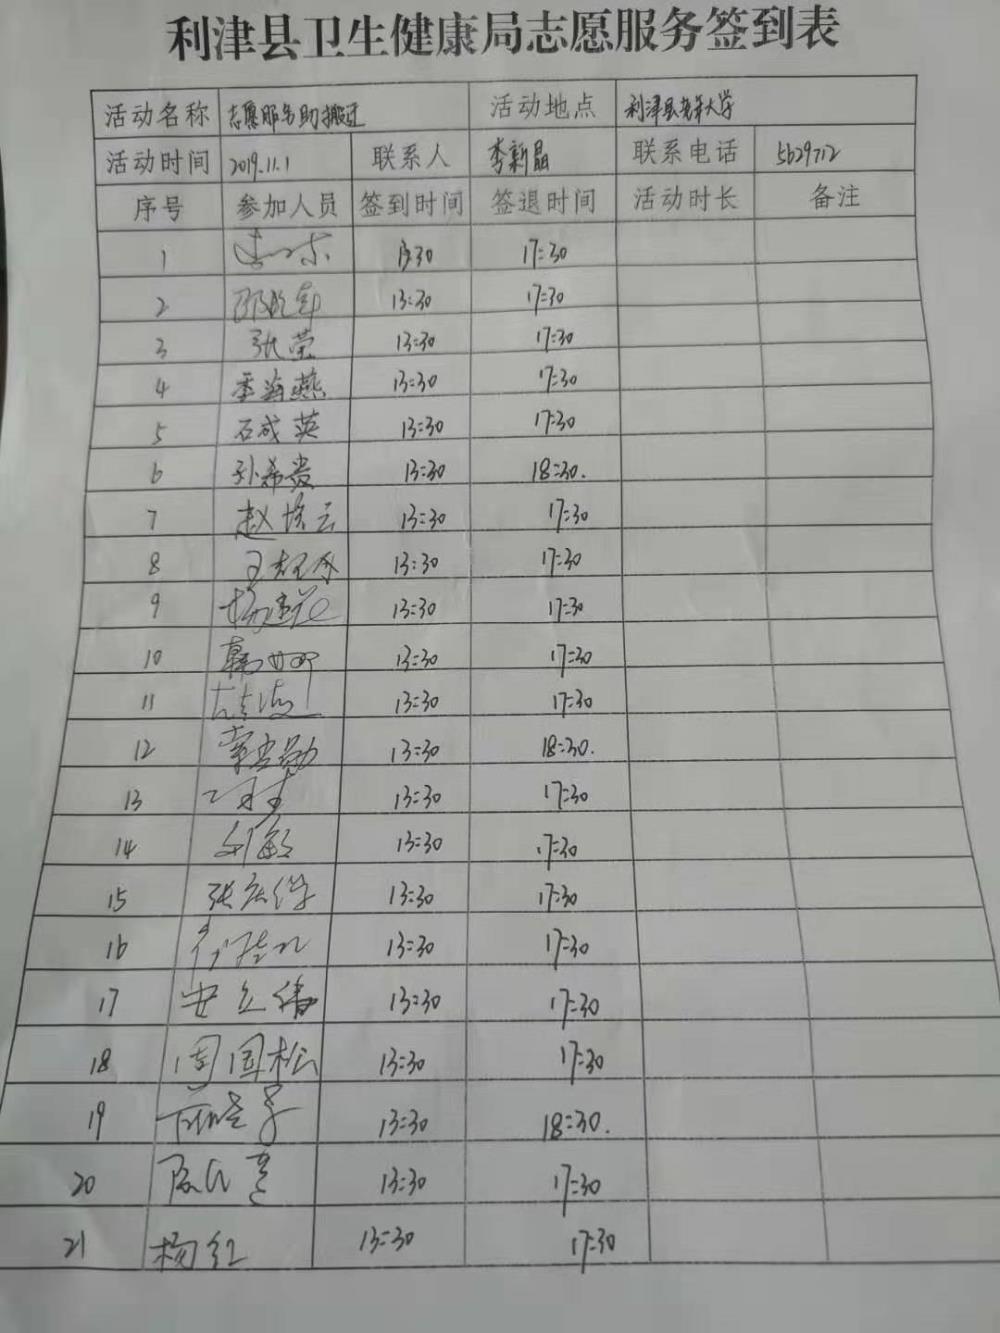 利津县卫生健康局志愿服务签到表
活动名称 志愿服务助搬迁 活动地点 利津县老年大学
活动时间 2019.11.1 联系人 李新晶 联系电话 5629712
序号 参加人员 签到时间 签退时间 活动时长 备注
1 13:30 17:30
2 13:30 17:30
3 张荣 13:30 17:30
4 季海燕 13:30 17:30
5 石成英 13:30 17:30
6 孙希贵 13:30 18:30.
7 赵 云 13:30 17:30
8 王 13:30 17:30
9 杨建花 13:30 17:30
10 韩 13:30 17:30
11 13:30 17:30
12 13:30 18:30.
13 13:30 17:30
14 刘敏 13:30 17:30
15 张 13:30 17:30
16 13:30 17:30
17 安立伟 13:30 17:30
18 周国松 13:30 17:30
19 13:30 18:30.
20 13:30 17:30
21 杨红 13:30 17:30